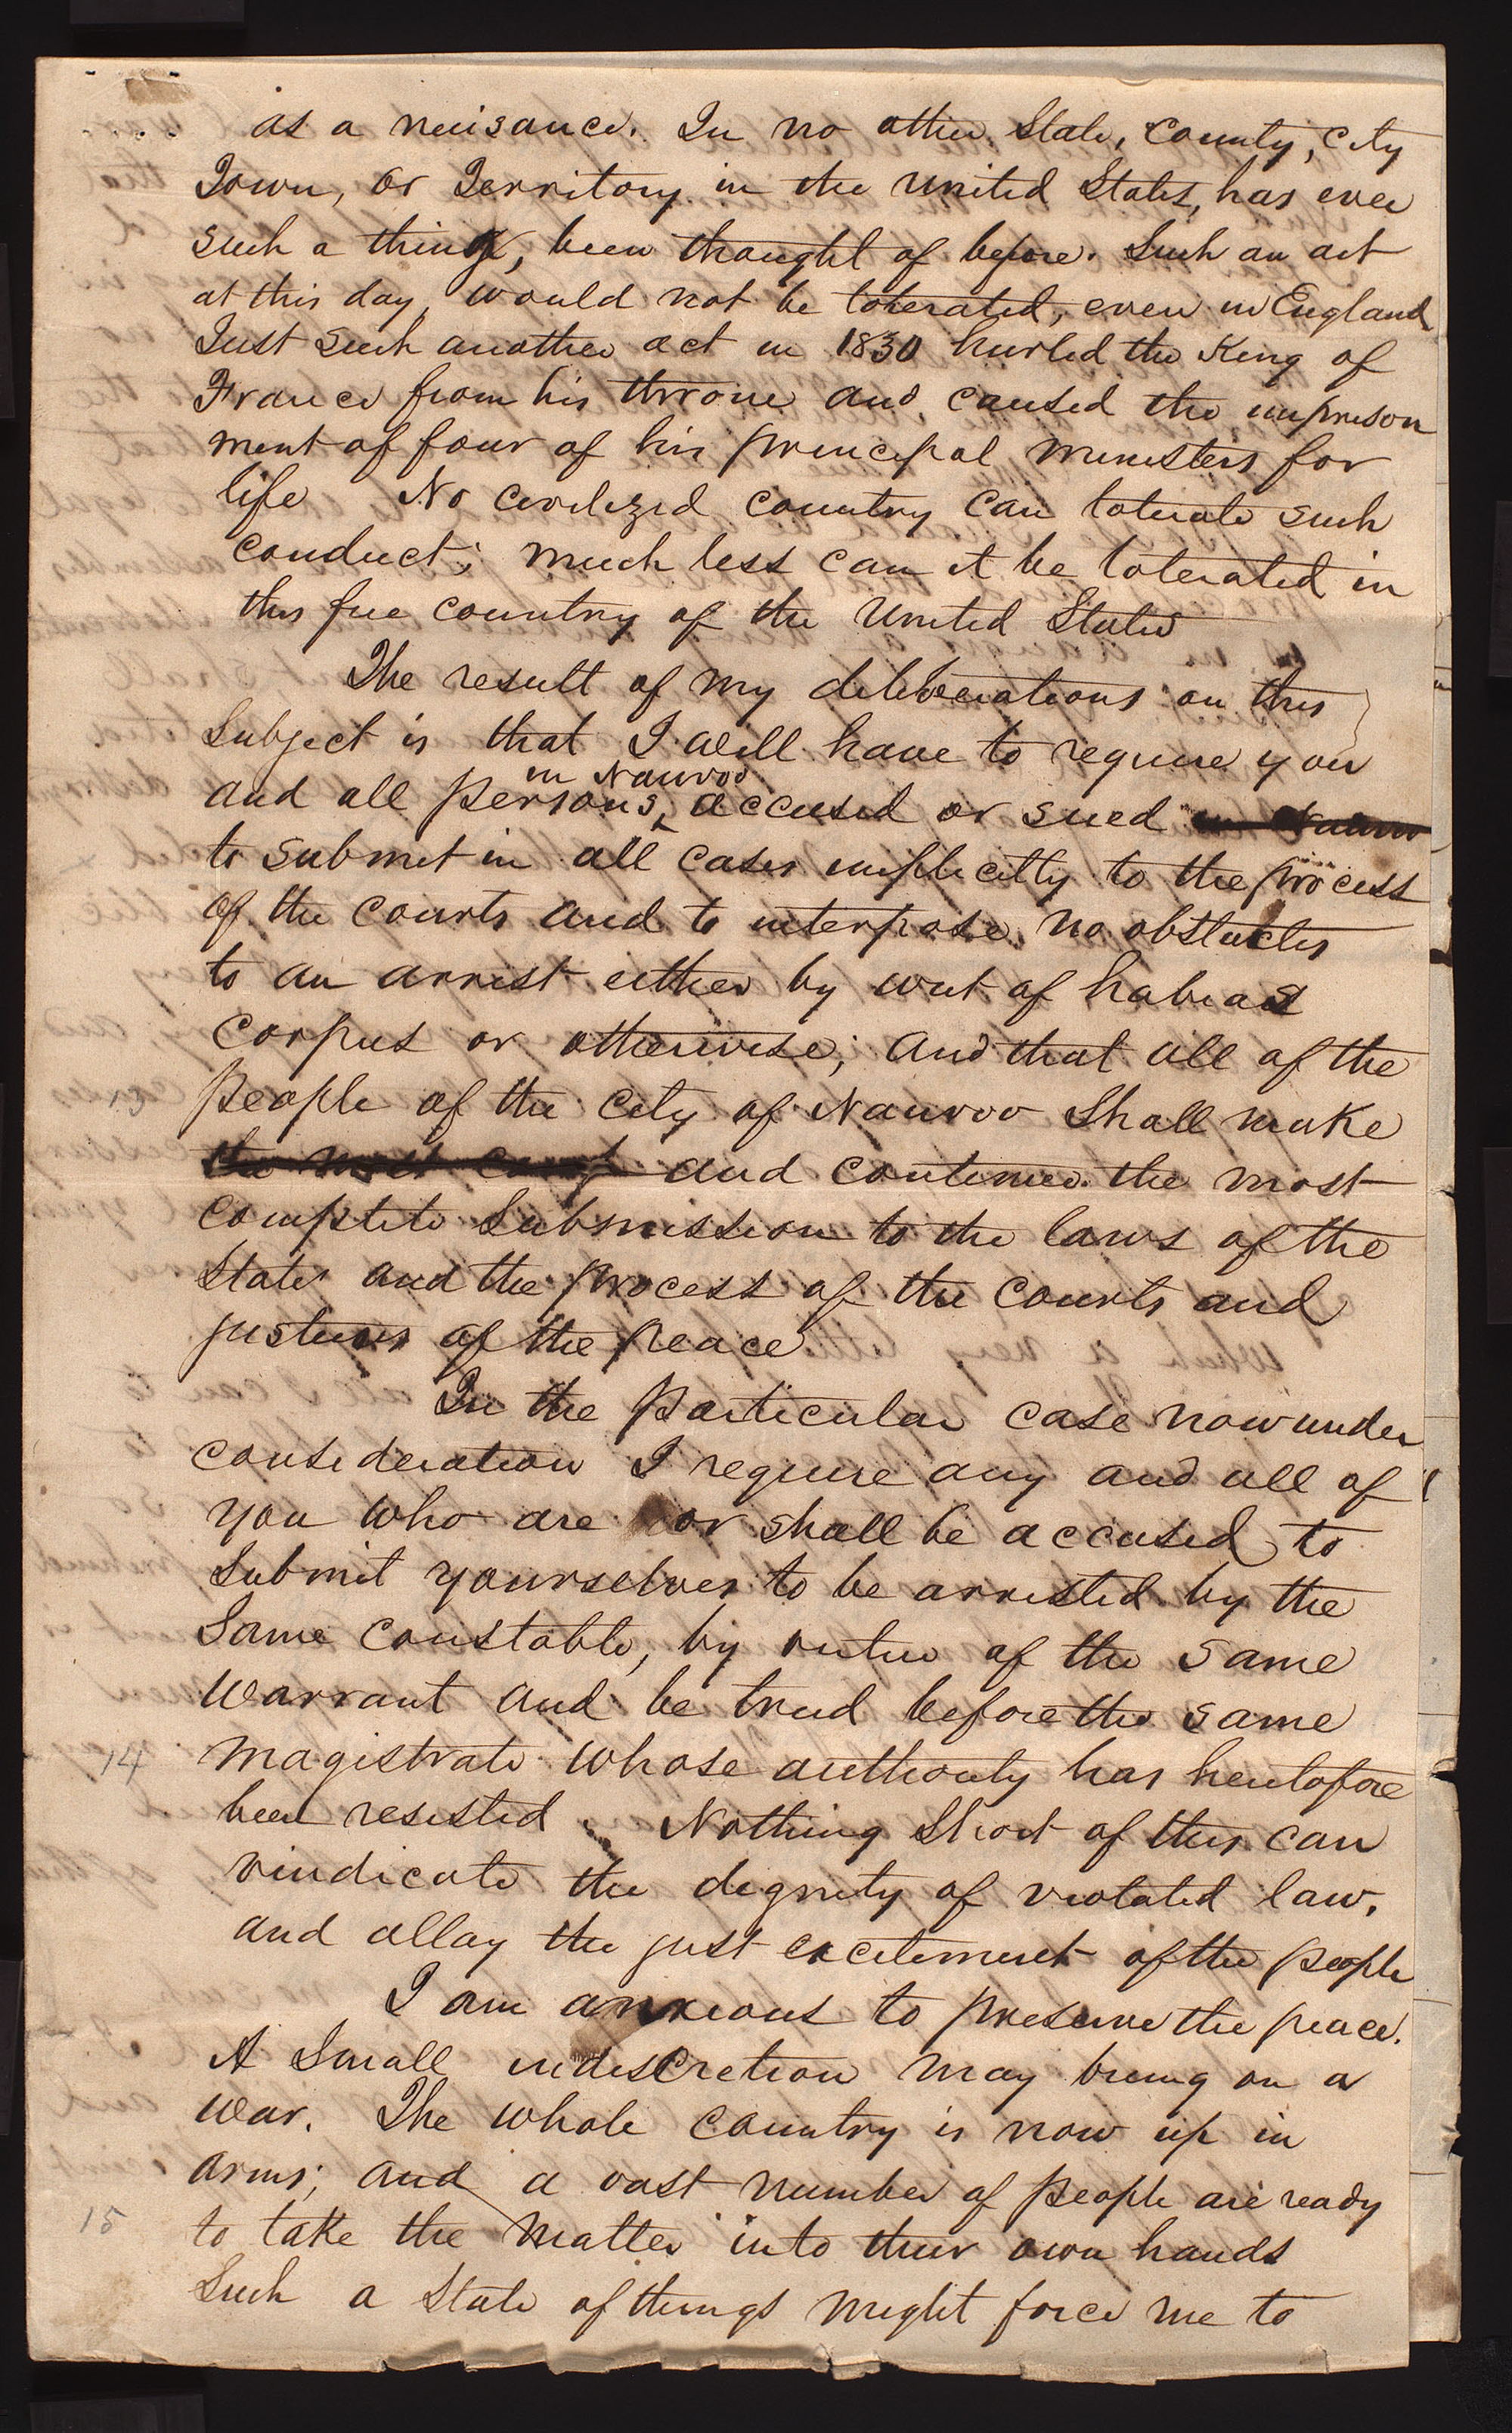 as a nuisance. In no other State, County, City
Town, or Territory in the United States, has ever
such a thing, been thought of before. Such an act
at this day, would not be tolerated, even in England
Just such another act in 1830 hurled the King of
France from his throne and caused the imprison
ment of four of his principal ministers for
life No civilized country can tolerate such
conduct; much less can it be tolerated in
this free country of the United States
The result of my deliberations on this
Subject is that I will have to require you
in Nauvoo
and all persons, accused or sued in Nauvoo
to submit in all cases implicitly to the process
of the courts and to interpose no obstacles
to an arrest either by writ of habeas
corpus or otherwise; And that all of the
13 people of the City of Nauvoo Shall make
the most and continue the most
complete Submission to the laws of the
State and the process of the courts and
justices of the peace
In the particular case now under
consideration I require any and all of
you who are or shall be accused to
Submit yourselves to be arrested by the
Same constable, by virtue of the same
warrant and be tried before the same
14 magistrate whose authority has heretofore
been resisted. Nothing Short of this can
vindicate the dignity of violated law,
and allay the just excitement of the people
I am anxious to preserve the peace.
A Small indiscretion may bring on a
war. The whole country is now up in
arms; and a vast number of people are ready
15 to take the matter into their own hands
Such a State of things might force me to